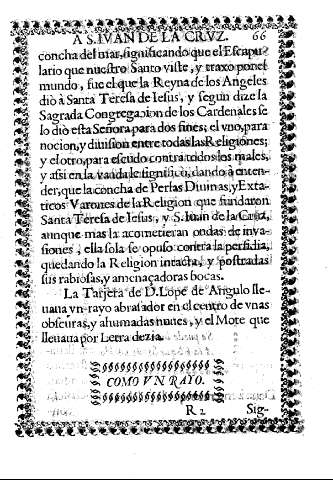 A S. IVAN DE LA CRVZ. 66
concha del mar, significando que el Escapu-
lario que nuestro Santo viste, y traxo por el
mundo, fue el que la Reyna de los Angeles
diò à Santa Teresa de Iesus, y segun dize la
Sagrada Congregacion de los Cardenales se
lo diò esta Señora para dos fines; el vno, para
nocion, y diuision entre todas las Religiones;
y el otro, para escudo contra todos los males,
y assi en la vanda le significò, dando à enten-
der, que la concha de Perlas Diuinas, y Exta-
ticos Varones de la Religion que fundaron
Santa Teresa de Iesus, y S. Iuan de la Cruz,
aunque mas la acometieran ondas de inva-
siones, ella sola se opuso contra la perfidia,
quedando la Religion intacta, y postradas
sus rabiosas, y amenaçadoras bocas.
La Tarjeta de D. Lope de Angulo lle-
uaua vn rayo abrasador en el centro de vnas
obscuras, y ahumadas nuues, y el Mote que
lleuaua por Letra dezia.
COMO VN RAYO.
R 2 Sig-